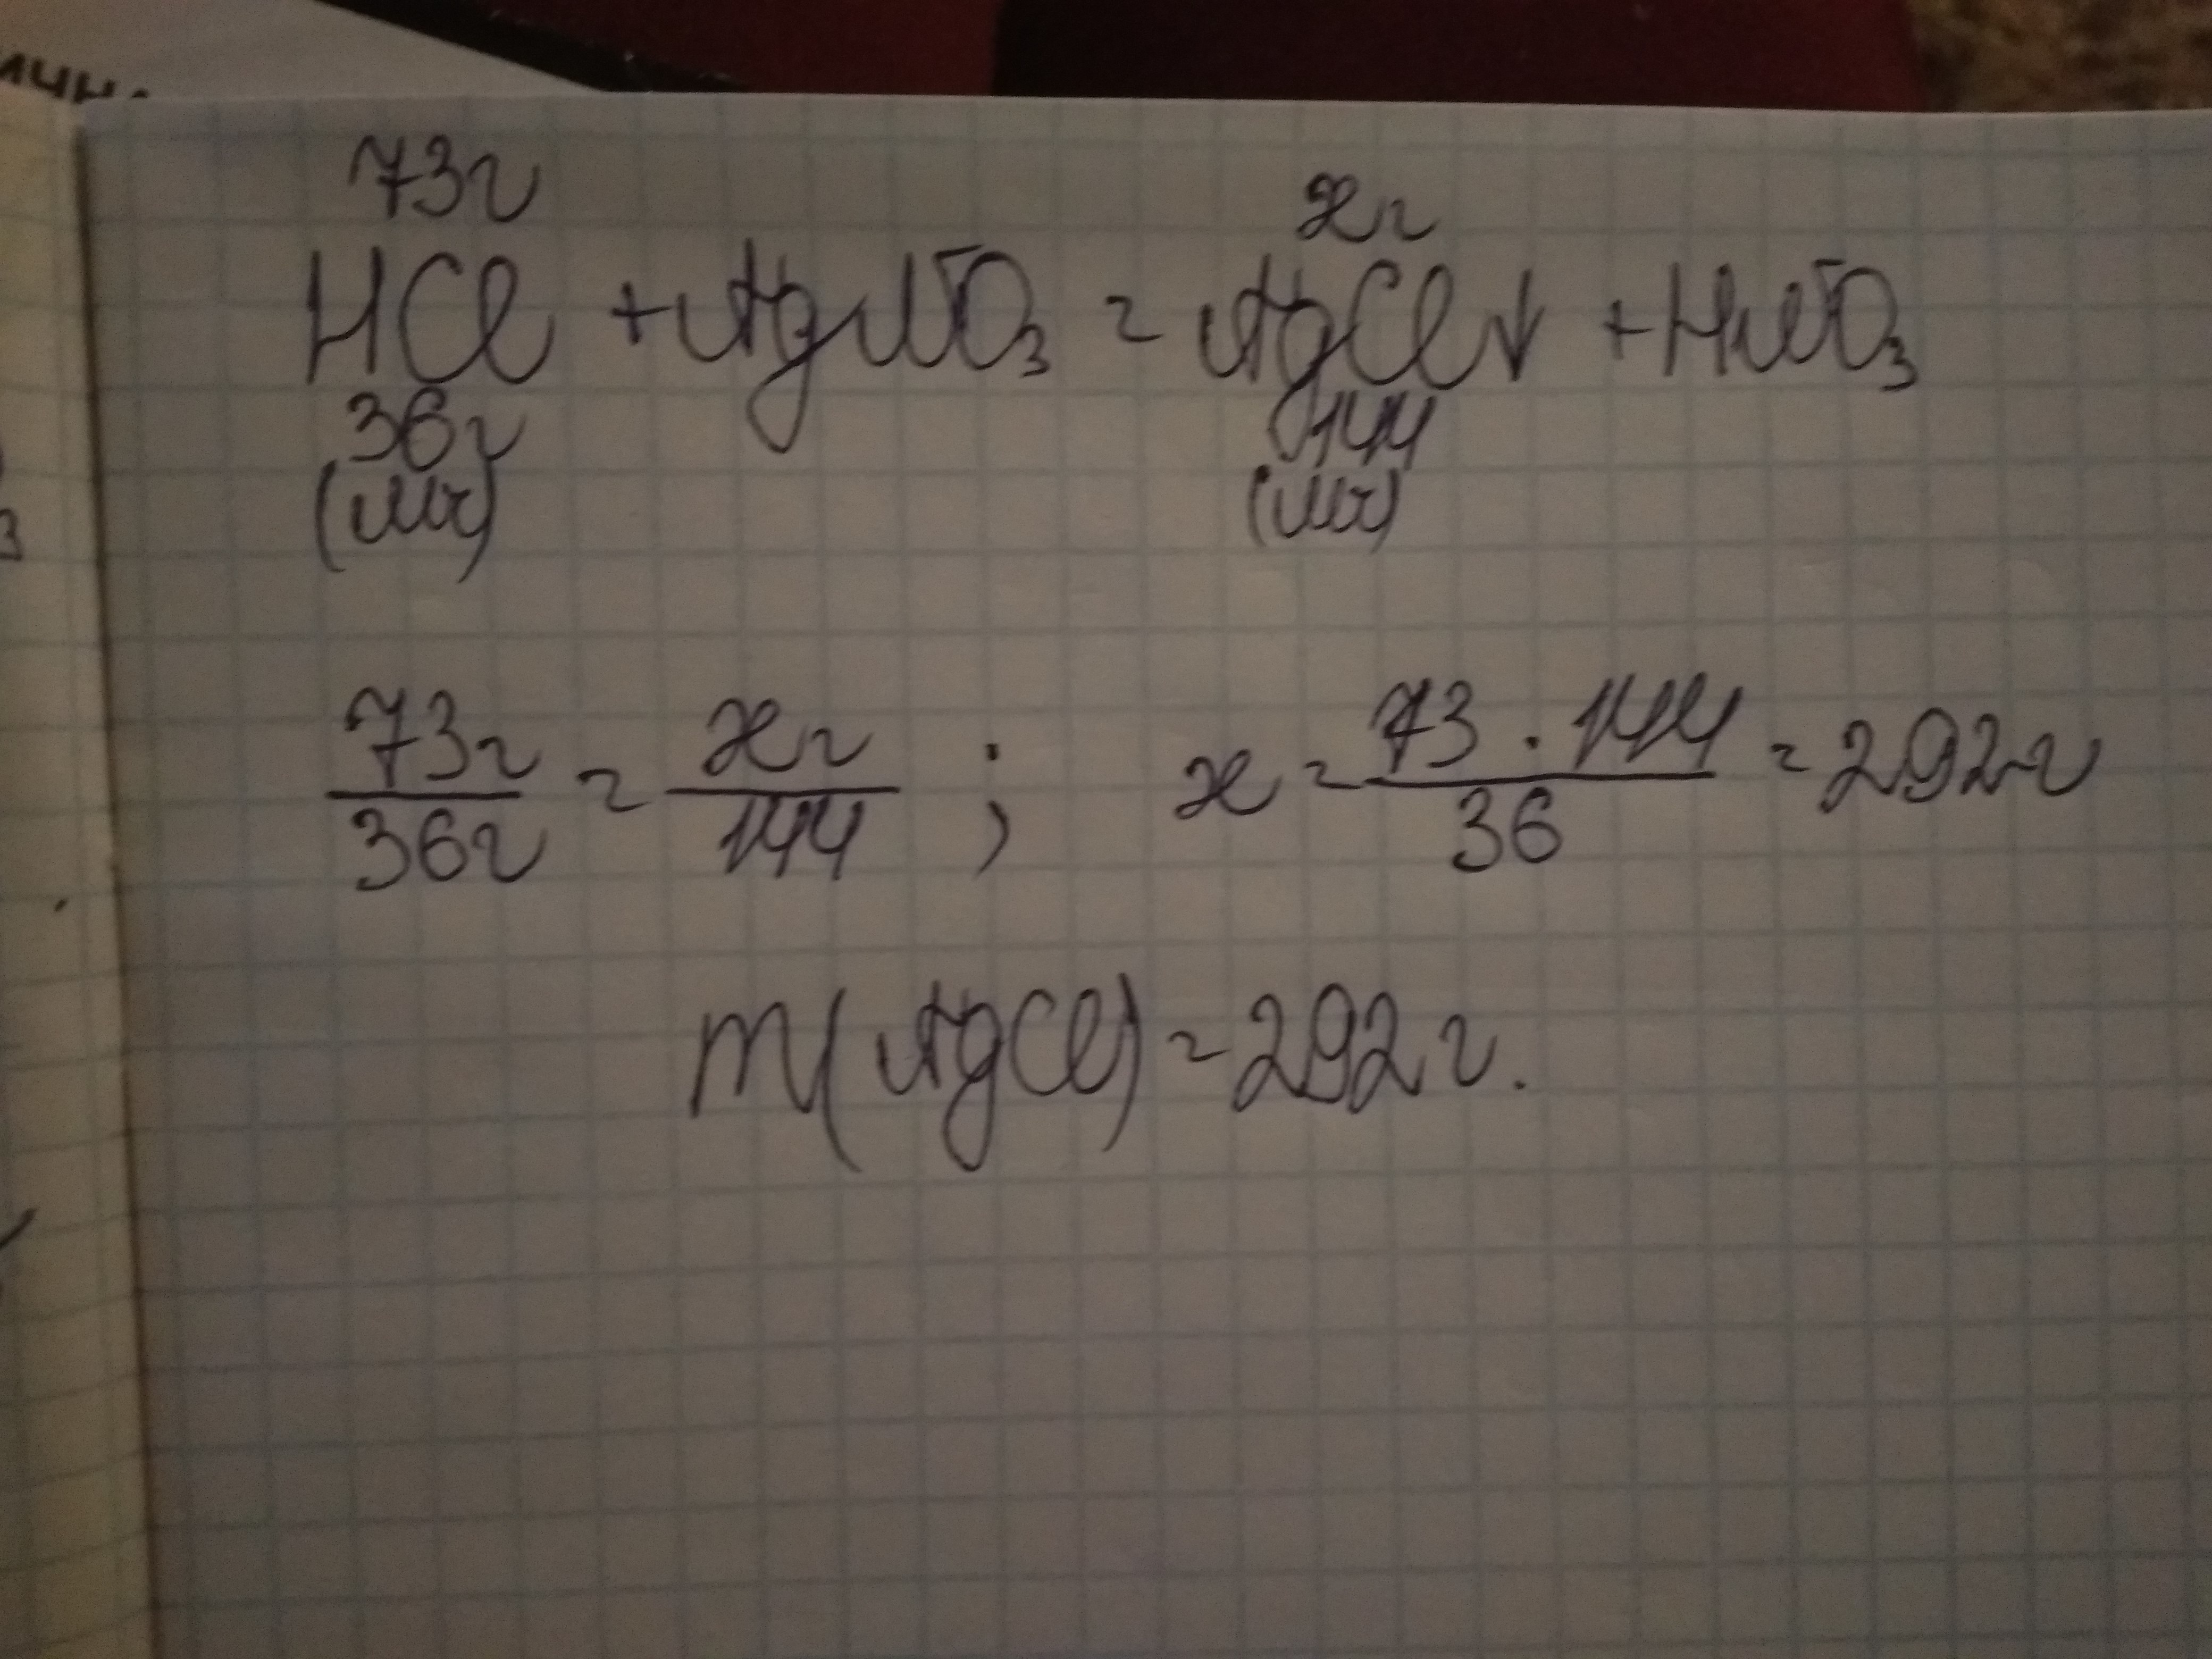 73г
xг
HCl + AgNO₃ = AgCl↓ + HNO₃
36г
144
(Mr)
(Mr)
73г/36г = xг/144 ; x = 73 · 144/36 = 292г
m(AgCl) = 292 г.